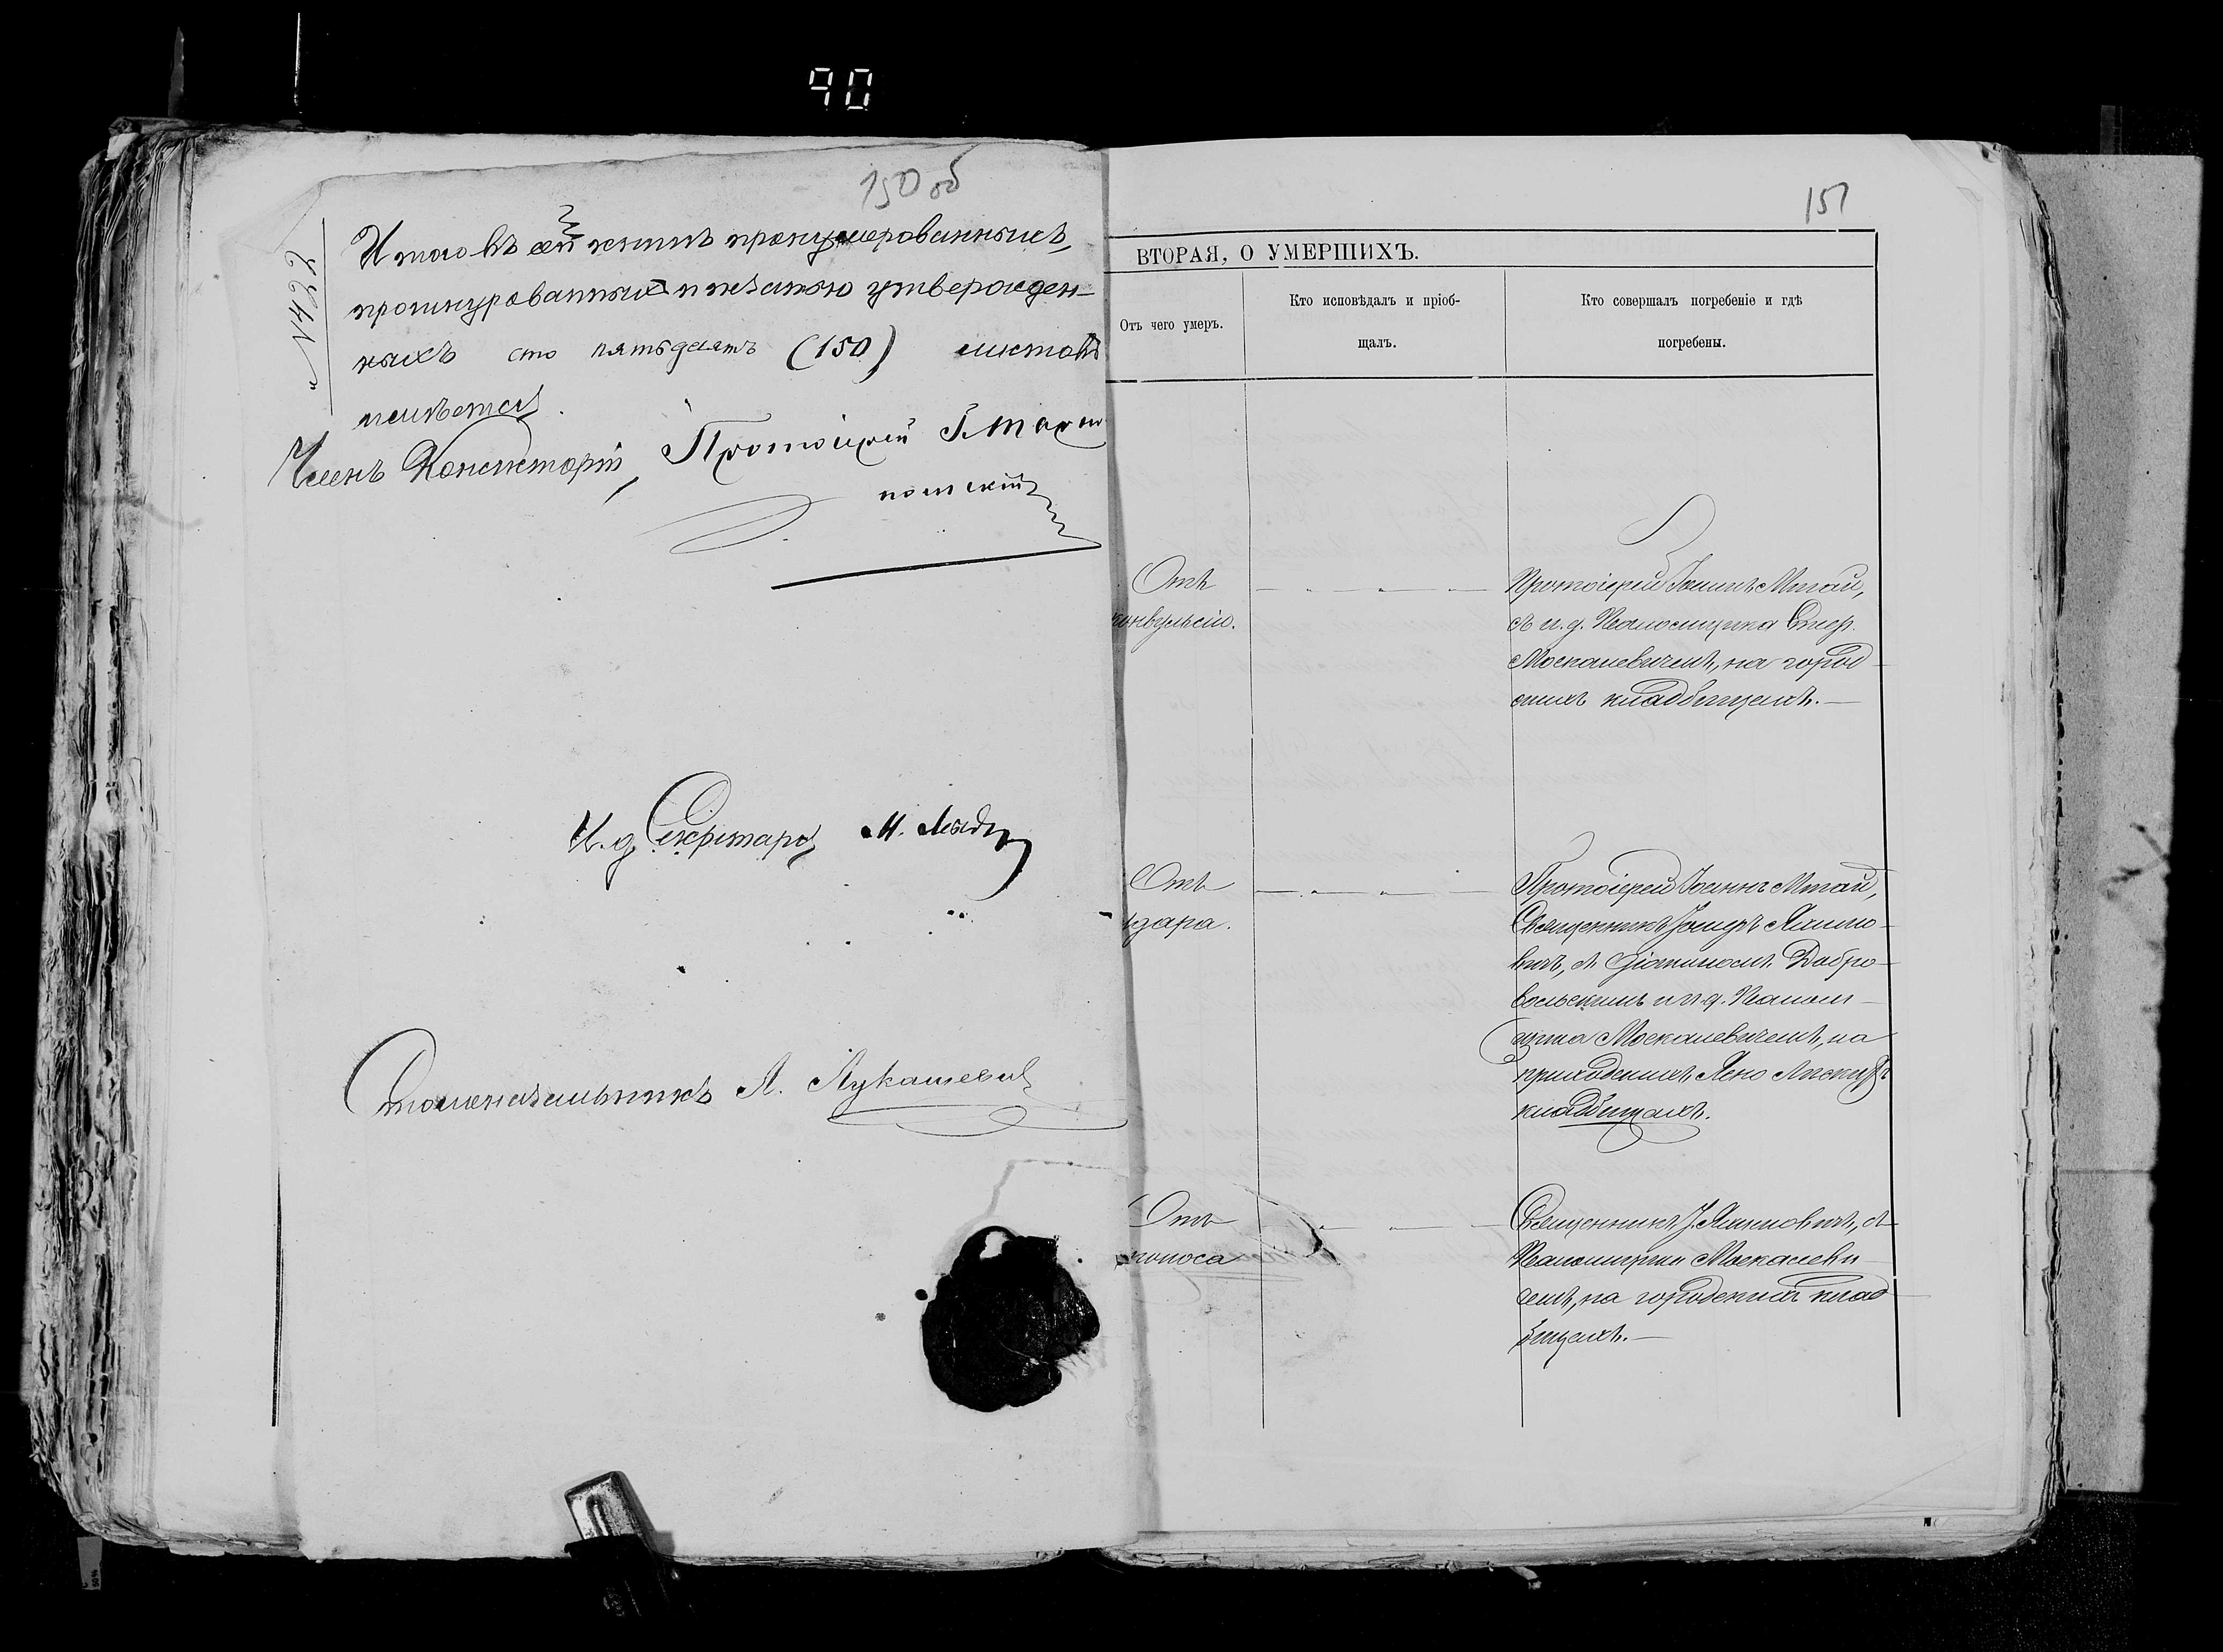 90
150 об
№ 422
Итого въ сей книгѣ пронумерованныхъ,
прошнурованныхъ и печатью утвержден-
ныхъ сто пятьдесятъ (150) листовъ
имѣется.
Членъ Консисторіи, Протоіерей І. Тарно-
польскій
И. д. Секретаря М.
Столоначальникъ А. Лукашевич
151
ВТОРАЯ, О УМЕРШИХЪ.
Отъ чего умеръ.
Кто исповѣдалъ и пріоб-
щалъ.
Кто совершалъ погребеніе и гдѣ
погребены.
Отъ
конвульсіи.
Протоіерей Іоаннъ Мтай,
съ и. д. Псаломщика
Москалевичемъ, на город-
скихъ кладбищахъ.
Отъ
удара.
Протоіерей Іоаннъ Мтай,
Священникъ Іосифъ Якимо-
вичъ, съ Діакономъ Добро-
вольскимъ и и. д. Псалом-
щика Москалевичемъ, на
приходскихъ
кладбищахъ.
Отъ
поноса
Священникъ І. Якимовичъ, съ
Псаломщикомъ Москалеви-
чемъ, на городскихъ клад-
бищахъ.